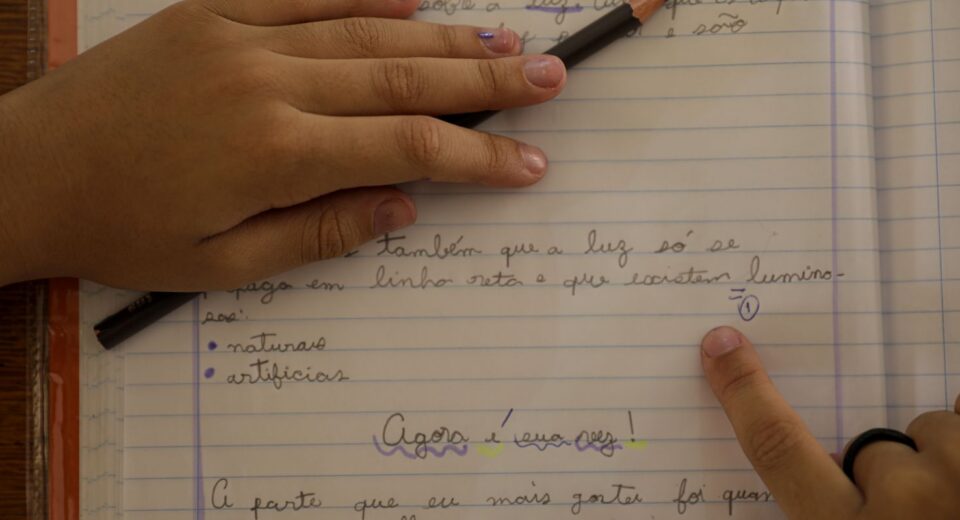 sobre a luz,
e são
também que a luz só se
paga em linha reta e que existem lumino-
① sos:
• naturais
• artificias
Agora é sua vez!
A parte que eu mais gostei foi quan